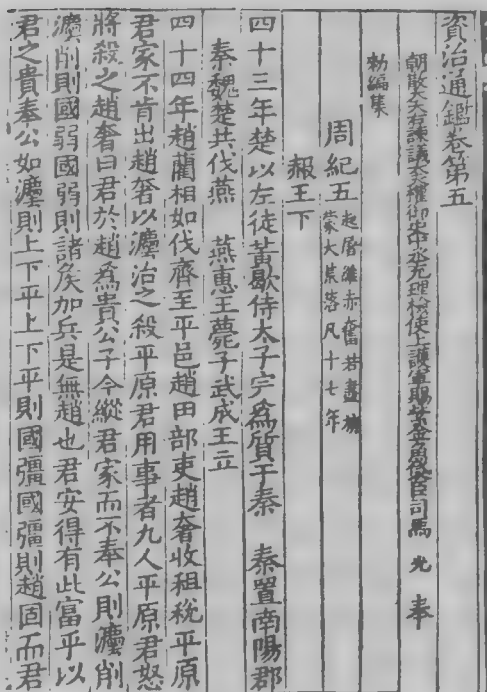 資治通鑑卷第五
朝散大夫右諫議大夫權御史中丞充理檢使上護軍賜紫金魚袋臣司馬光奉
勑編集
周紀五起屠維赤奮若盡旃
蒙大荒落凡十七年
赧王下
四十三年楚以左徒黃歇侍太子完為質于秦 秦置南陽郡
秦魏楚共伐燕 燕惠王薨子武成王立
四十四年趙藺相如伐齊至平邑趙田部吏趙奢收租稅平原
君家不肯出趙奢以灋治之殺平原君用事者九人平原君怒
將殺之趙奢曰君於趙為貴公子今縱君家而不奉公則灋削
灋削則國弱國弱則諸矦加兵是無趙也君安得有此富乎以
君之貴奉公如灋則上下平上下平則國彊國彊則趙固而君